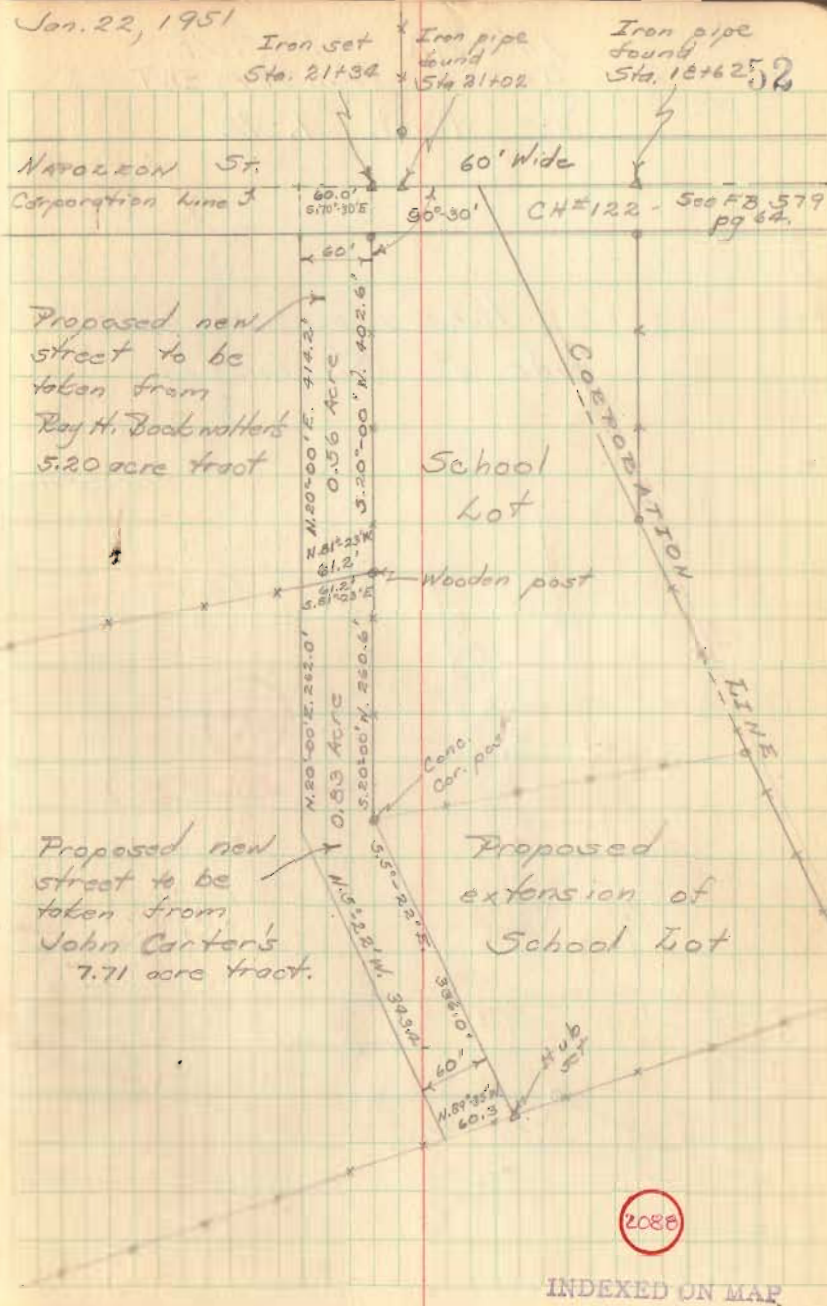 Jan. 22, 1951
52
Iron set
Sta. 21+34
Iron pipe
found
Sta 21+02
Iron pipe
found
Sta. 18+62
NAPOLEON ST.
60' Wide
Corporation Line
60.0'
S.70°-30'E
90°-30'
CH#122 - See FB 579
pg 64.
60'
Proposed new
street to be
taken from
Ray H. Bookwalter's
5.20 acre tract
N.20°-00'E. 414.2'
0.56 Acre
S.20°-00'W. 402.6'
School
Lot
CORPORATION
LINE
61.2'
61.2'
S.81°-23'E
Wooden post
N.20°-00'E. 262.0'
0.83 Acre
S.20°-00'W. 260.6'
Conc.
Cor. post
Proposed new
street to be
taken from
John Carter's
7.71 acre tract.
N.5°-22'W. 343.2
S.5°-22'E. 336.0'
Proposed
extension of
School Lot
60'
Hub
set
N.89°-35'W.
60.3
2088
INDEXED ON MAP